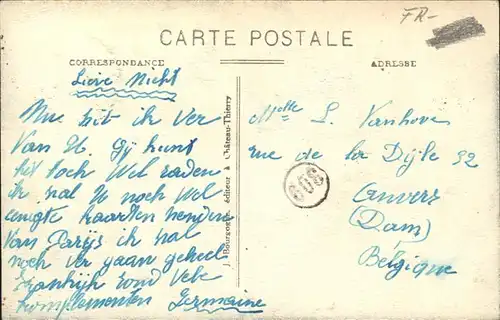 FR-
CARTE POSTALE
CORRESPONDANCE
ADRESSE
Lieve Nicht
Nu zit ik ver
Van U Gij kunt
het toch Wel raden
ik zal U noch Wel
enigte kaarten zenden
Van Parijs ik zal
noch Ver gaan geheel
Frankrijk rond Vele
komplementen Germaine
J. Bourgogne, éditeur à Château-Thierry
Melle L. Vanhove
rue de la Dyle 32
Anvers
(Dam)
Belgique